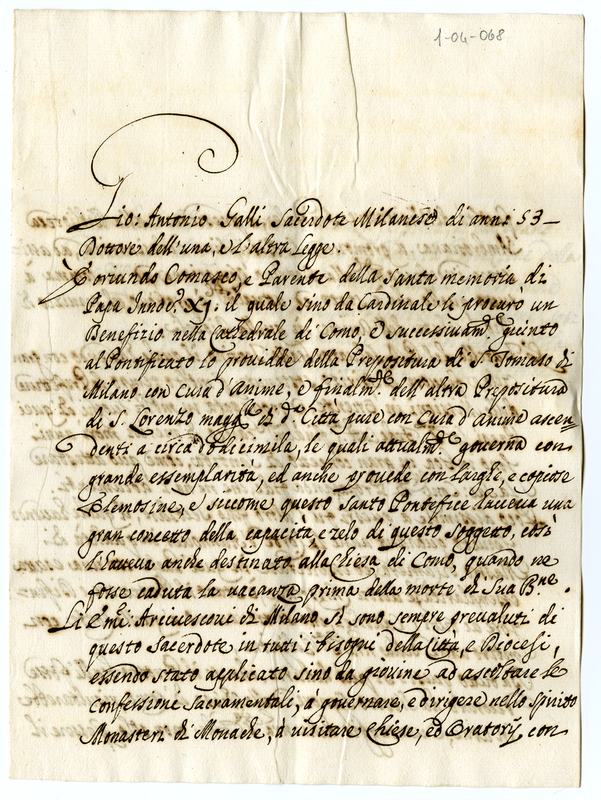 1-04-068
Gio: Antonio Galli Sacerdote Milanese di anni 53-
Dottore dell'una, e l'altra Legge.
È oriundo Comasco, e Parente della Santa memoria di
Papa Innoc.º XI: il quale sino da Cardinale le procurò un
Benefizio nella Cattedrale di Como, e successivam.te giunto
al Pontificato lo providde della Prepositura di S. Tomaso di
Milano con Cura d'Anime, e finalm.te dell'altra Prepositura
di S. Lorenzo magg.re di d.ª Città pure con Cura d'Anime ascen=
denti a circa dodicimila, le quali attualm.te governa con
grande essemplarità, ed anche provede con larghe, e copiose
Elemosine, e siccome questo Santo Pontefice haveva una
gran concetto della capacità, e zelo di questo soggetto, così
l'haveva anche destinato alla Chiesa di Como, quando ne
fosse caduta la vacanza prima della morte di Sua B.ne.
Li E'mi: Arcivescovi di Milano si sono sempre prevaluti di
questo Sacerdote in tutti i bisogni della Città, e Diocesi,
essendo stato applicato sino da giovine ad ascoltare le
Confessioni Sacramentali, à governare, e dirigere nello Spirito
Monasteri di Monache, à visitare Chiese, ed Oratorij con